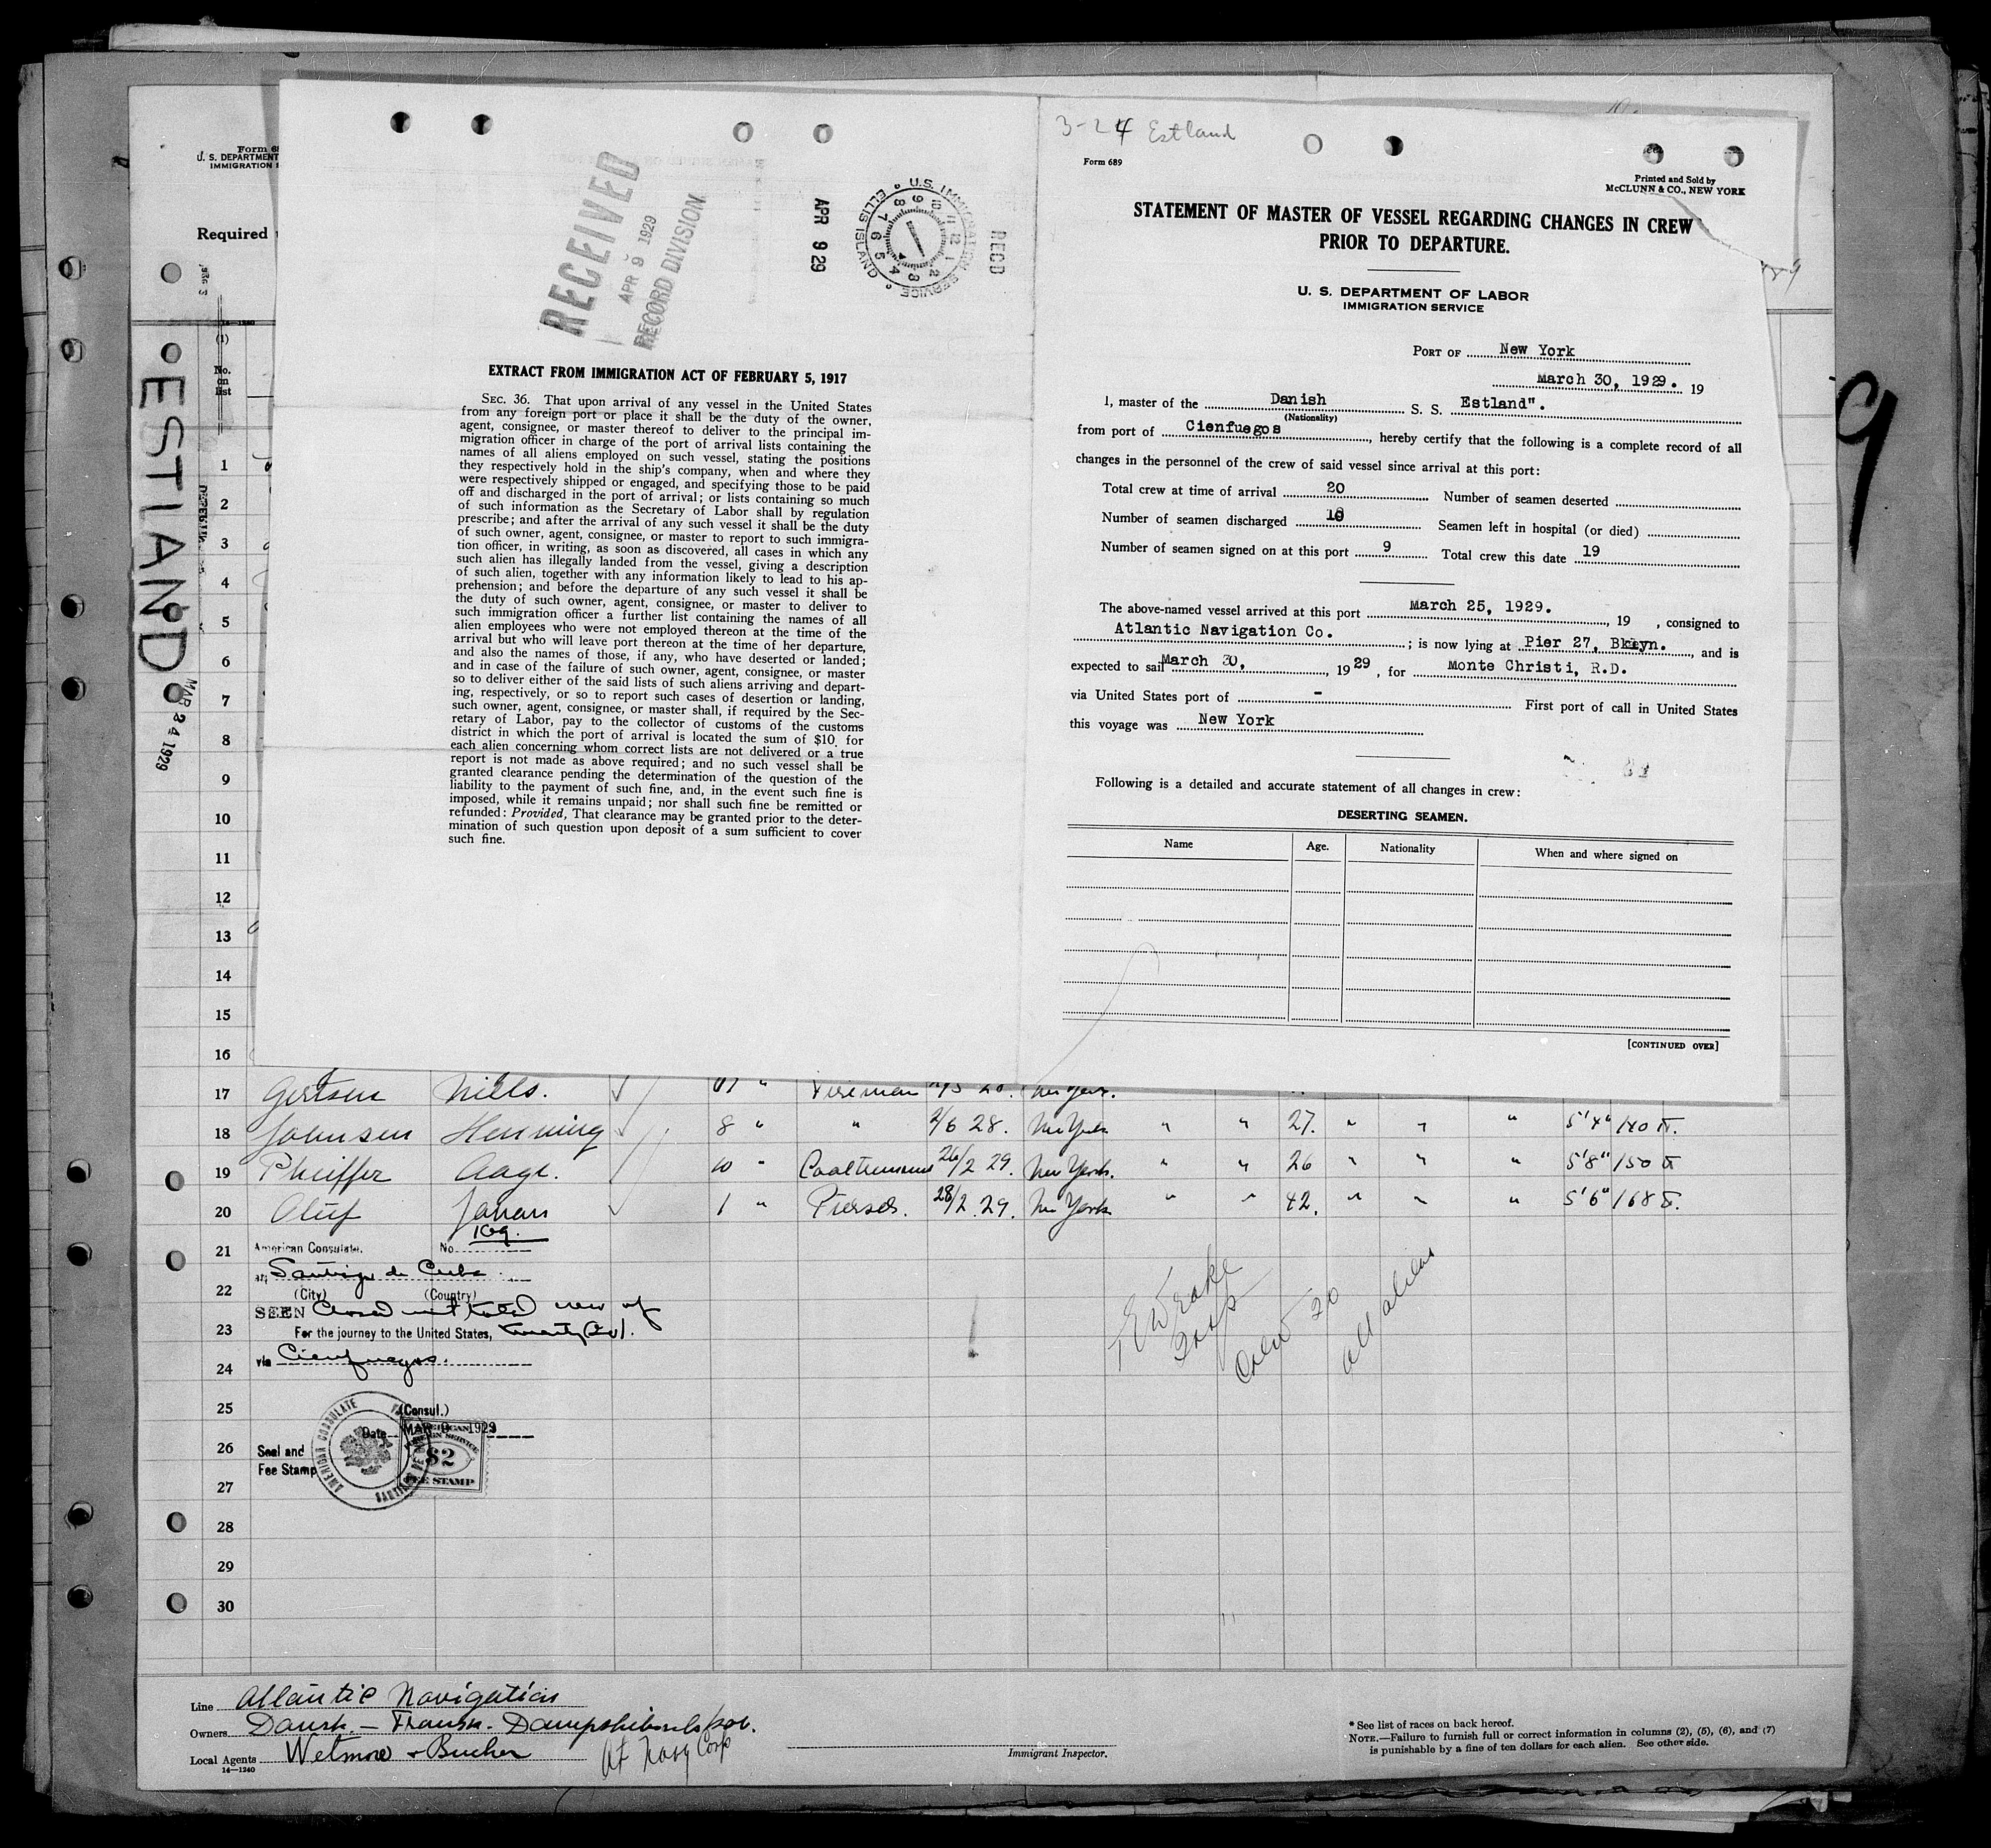 Form 68
U. S. DEPARTMENT
IMMIGRATION
Required
(1)
No.
on
list
ESTLAND
MAR 24 1929
1
2
3
4
5
6
7
8
9
10
11
12
13
14
15
16
RECEIVED
APR 9 1929
RECORD DIVISION
APR 9 29
U.S. IMMIGRATION SERVICE
ELLIS ISLAND
RECD
EXTRACT FROM IMMIGRATION ACT OF FEBRUARY 5, 1917
SEC. 36. That upon arrival of any vessel in the United States
from any foreign port or place it shall be the duty of the owner,
agent, consignee, or master thereof to deliver to the principal im-
migration officer in charge of the port of arrival lists containing the
names of all aliens employed on such vessel, stating the positions
they respectively hold in the ship's company, when and where they
were respectively shipped or engaged, and specifying those to be paid
off and discharged in the port of arrival; or lists containing so much
of such information as the Secretary of Labor shall by regulation
prescribe; and after the arrival of any such vessel it shall be the duty
of such owner, agent, consignee, or master to report to such immigra-
tion officer, in writing, as soon as discovered, all cases in which any
such alien has illegally landed from the vessel, giving a description
of such alien, together with any information likely to lead to his ap-
prehension; and before the departure of any such vessel it shall be
the duty of such owner, agent, consignee, or master to deliver to
such immigration officer a further list containing the names of all
alien employees who were not employed thereon at the time of the
arrival but who will leave port thereon at the time of her departure,
and also the names of those, if any, who have deserted or landed;
and in case of the failure of such owner, agent, consignee, or master
so to deliver either of the said lists of such aliens arriving and depart-
ing, respectively, or so to report such cases of desertion or landing,
such owner, agent, consignee, or master shall, if required by the Sec-
retary of Labor, pay to the collector of customs of the customs
district in which the port of arrival is located the sum of $10. for
each alien concerning whom correct lists are not delivered or a true
report is not made as above required; and no such vessel shall be
granted clearance pending the determination of the question of the
liability to the payment of such fine, and, in the event such fine is
imposed, while it remains unpaid; nor shall such fine be remitted or
refunded: Provided, That clearance may be granted prior to the deter-
mination of such question upon deposit of a sum sufficient to cover
such fine.
3-24 Estland
Form 689
Printed and Sold by
McCLUNN & CO., NEW YORK
STATEMENT OF MASTER OF VESSEL REGARDING CHANGES IN CREW
PRIOR TO DEPARTURE.
U. S. DEPARTMENT OF LABOR
IMMIGRATION SERVICE
PORT OF New York
March 30, 1929. 19
I, master of the Danish S. S. Estland".
(Nationality)
from port of Cienfuegos, hereby certify that the following is a complete record of all
changes in the personnel of the crew of said vessel since arrival at this port:
Total crew at time of arrival 20 Number of seamen deserted
Number of seamen discharged 10 Seamen left in hospital (or died)
Number of seamen signed on at this port 9 Total crew this date 19
The above-named vessel arrived at this port March 25, 1929. , 19 , consigned to
Atlantic Navigation Co. ; is now lying at Pier 27, Bklyn. , and is
expected to sail March 30, , 1929 , for Monte Christi, R.D.
via United States port of - First port of call in United States
this voyage was New York
Following is a detailed and accurate statement of all changes in crew:
DESERTING SEAMEN.
Name Age. Nationality When and where signed on
[CONTINUED OVER]
9
17 Gertsen Niels. " Fireman New York.
18 Johnsen Henning 8 " " 2/6 28. New York " " 27. " " " 5'4" 140
19 Pheiffer Aage. 10 " Coaltrimmer 26/2 29. New York. " " 26 " " " 5'8" 150
20 Oluf Johan 1 " 28/2 29. New York " " 42. " " " 5'6" 168
21 American Consulate. No. 109.
at Santiago de Cuba
22 (City) (Country)
SEEN Closed with total crew of
23 For the journey to the United States, twenty (20).
24 via Cienfuegos.
25 (Consul.)
Date MAR 9 1929
26 Seal and
Fee Stamp
AMERICAN CONSULATE
AMERICAN
FOREIGN SERVICE
$2
FEE STAMP
27
28
29
30
Crew 20
all aliens
Line Atlantic Navigation
Owners Dansk. – Fransk. Dampskibsselskab.
Local Agents Wetmore + Bucher
At Navg Corp
14—1240
Immigrant Inspector.
* See list of races on back hereof.
NOTE.—Failure to furnish full or correct information in columns (2), (5), (6), and (7)
is punishable by a fine of ten dollars for each alien. See other side.